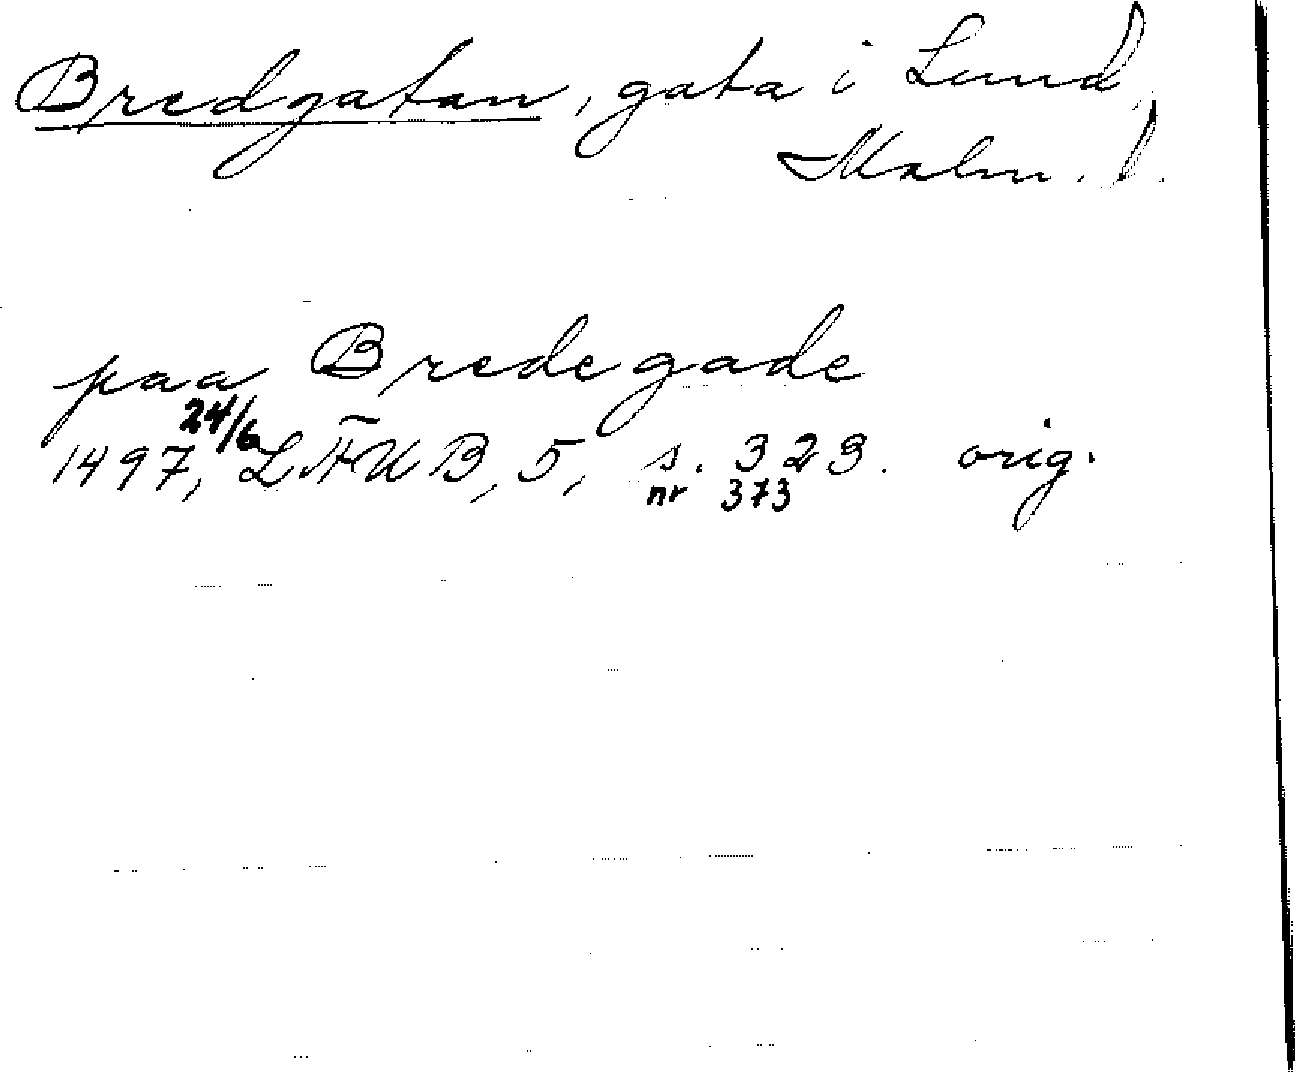 Bredgatan, gata i Lund,
Malm. l.
paa Bredegade
24/6
1497, LÄUB, 5, s. 323. orig.
nr 373